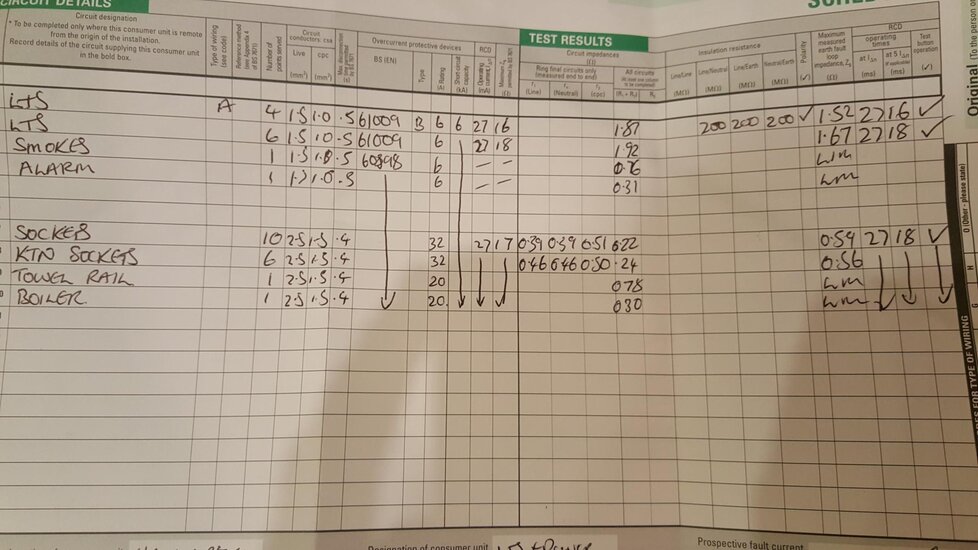 CIRCUIT DETAILS
SCHED
Circuit designation
* To be completed only where this consumer unit is remote
from the origin of the installation.
Record details of the circuit supplying this consumer unit
in the bold box.
Type of wiring
(see code)
Reference method
(see Appendix 4
of BS 7671)
Number of
points served
Circuit
conductors: csa
Live
(mm²)
cpc
(mm²)
Max. disconnection
time permitted
by BS 7671
Overcurrent protective devices
BS (EN)
Type
Rating
(A)
Short-circuit
capacity
(kA)
RCD
Operating
current, IΔn
(mA)
Maximum Zs
permitted by BS 7671
(Ω)
TEST RESULTS
Circuit impedances
(Ω)
Ring final circuits only
(measured end to end)
r1
(Line)
rn
(Neutral)
r2
(cpc)
All circuits
(At least one column
to be completed)
(R1 + R2)
R2
Insulation resistance
Line/Line
(MΩ)
Line/Neutral
(MΩ)
Line/Earth
(MΩ)
Neutral/Earth
(MΩ)
Polarity
(✓)
Maximum
measured
earth fault
loop
impedance, Zs
(Ω)
RCD
operating
times
at IΔn
(ms)
at 5 IΔn
(if applicable)
(ms)
Test
button
operation
(✓)
Original
(To the person o
LTS A 4 1.5 1.0 .5 61009 B 6 6 27 16 1.87 200 200 200 ✓ 1.52 27 16 ✓
LTS 6 1.5 1.0 .5 61009 6 27 18 1.92 1.67 27 18 ✓
SMOKES 1 1.5 1.0 .5 60898 6 — — 0.76 LIM
ALARM 1 1.5 1.0 .5 6 — — 0.31 LIM
SOCKETS 10 2.5 1.5 .4 32 27 17 0.39 0.39 0.51 0.22 0.54 27 18 ✓
KTN SOCKETS 6 2.5 1.5 .4 32 0.46 0.46 0.50 .24 0.56
TOWEL RAIL 1 2.5 1.5 .4 20 0.78 LIM
BOILER 1 2.5 1.5 .4 20 0.30 LIM
O (Other - please state)
FOR TYPE OF WIRING
Designation of consumer unit
Prospective fault current